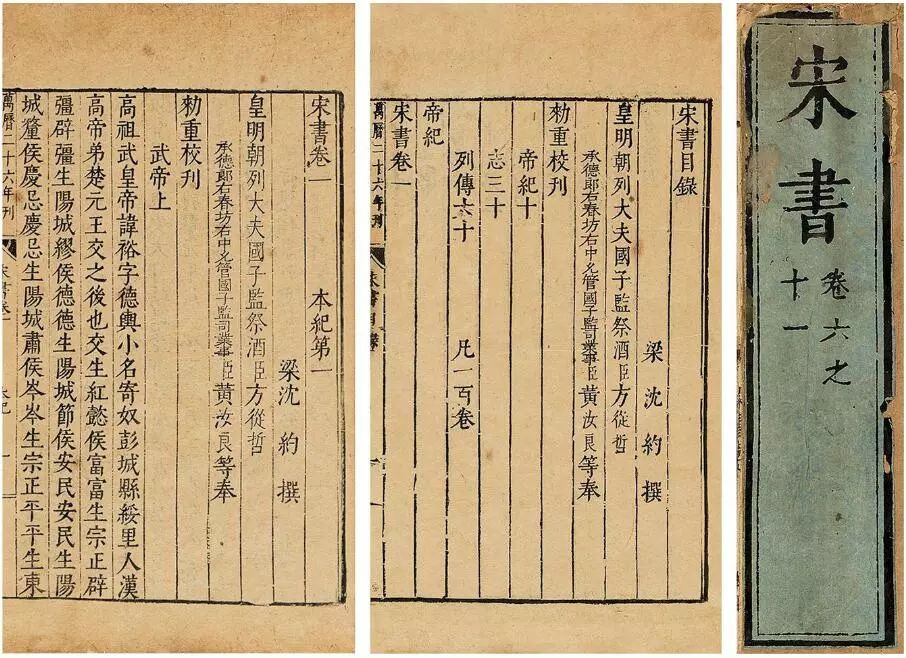 宋書
卷六之
十一
宋書目錄
梁沈約撰
皇明朝列大夫國子監祭酒臣方從哲
承德郎右春坊右中允管國子監司業事臣黃汝良等奉
勅重校刊
帝紀十
志三十
列傳六十 凡一百卷
帝紀
宋書卷一
萬曆二十六年刊
宋書目錄
宋書卷一 本紀第一
梁沈約撰
皇明朝列大夫國子監祭酒臣方從哲
承德郎右春坊右中允管國子監司業事臣黃汝良等奉
勅重校刊
武帝上
高祖武皇帝諱裕字德輿小名寄奴彭城縣綏里人漢
高帝弟楚元王交之後也交生紅懿侯富富生宗正辟
彊辟彊生陽城繆侯德德生陽城節侯安民安民生陽
城釐侯慶忌慶忌生陽城肅侯岑岑生宗正平平生東
萬曆二十六年刊
宋書卷一